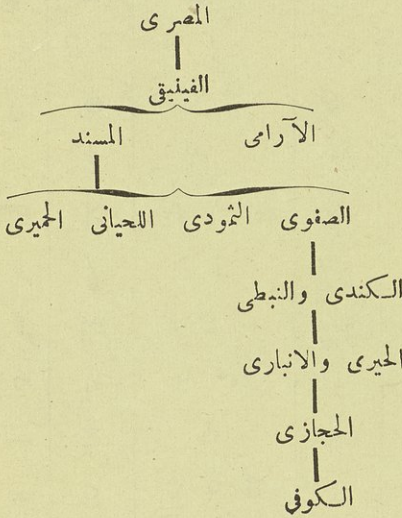 المصرى
الفينيقى
الآرامى المسند
الصفوى الثمودى اللحيانى الحميرى
الكندى والنبطى
الحيرى والانبارى
الحجازى
الكوفى